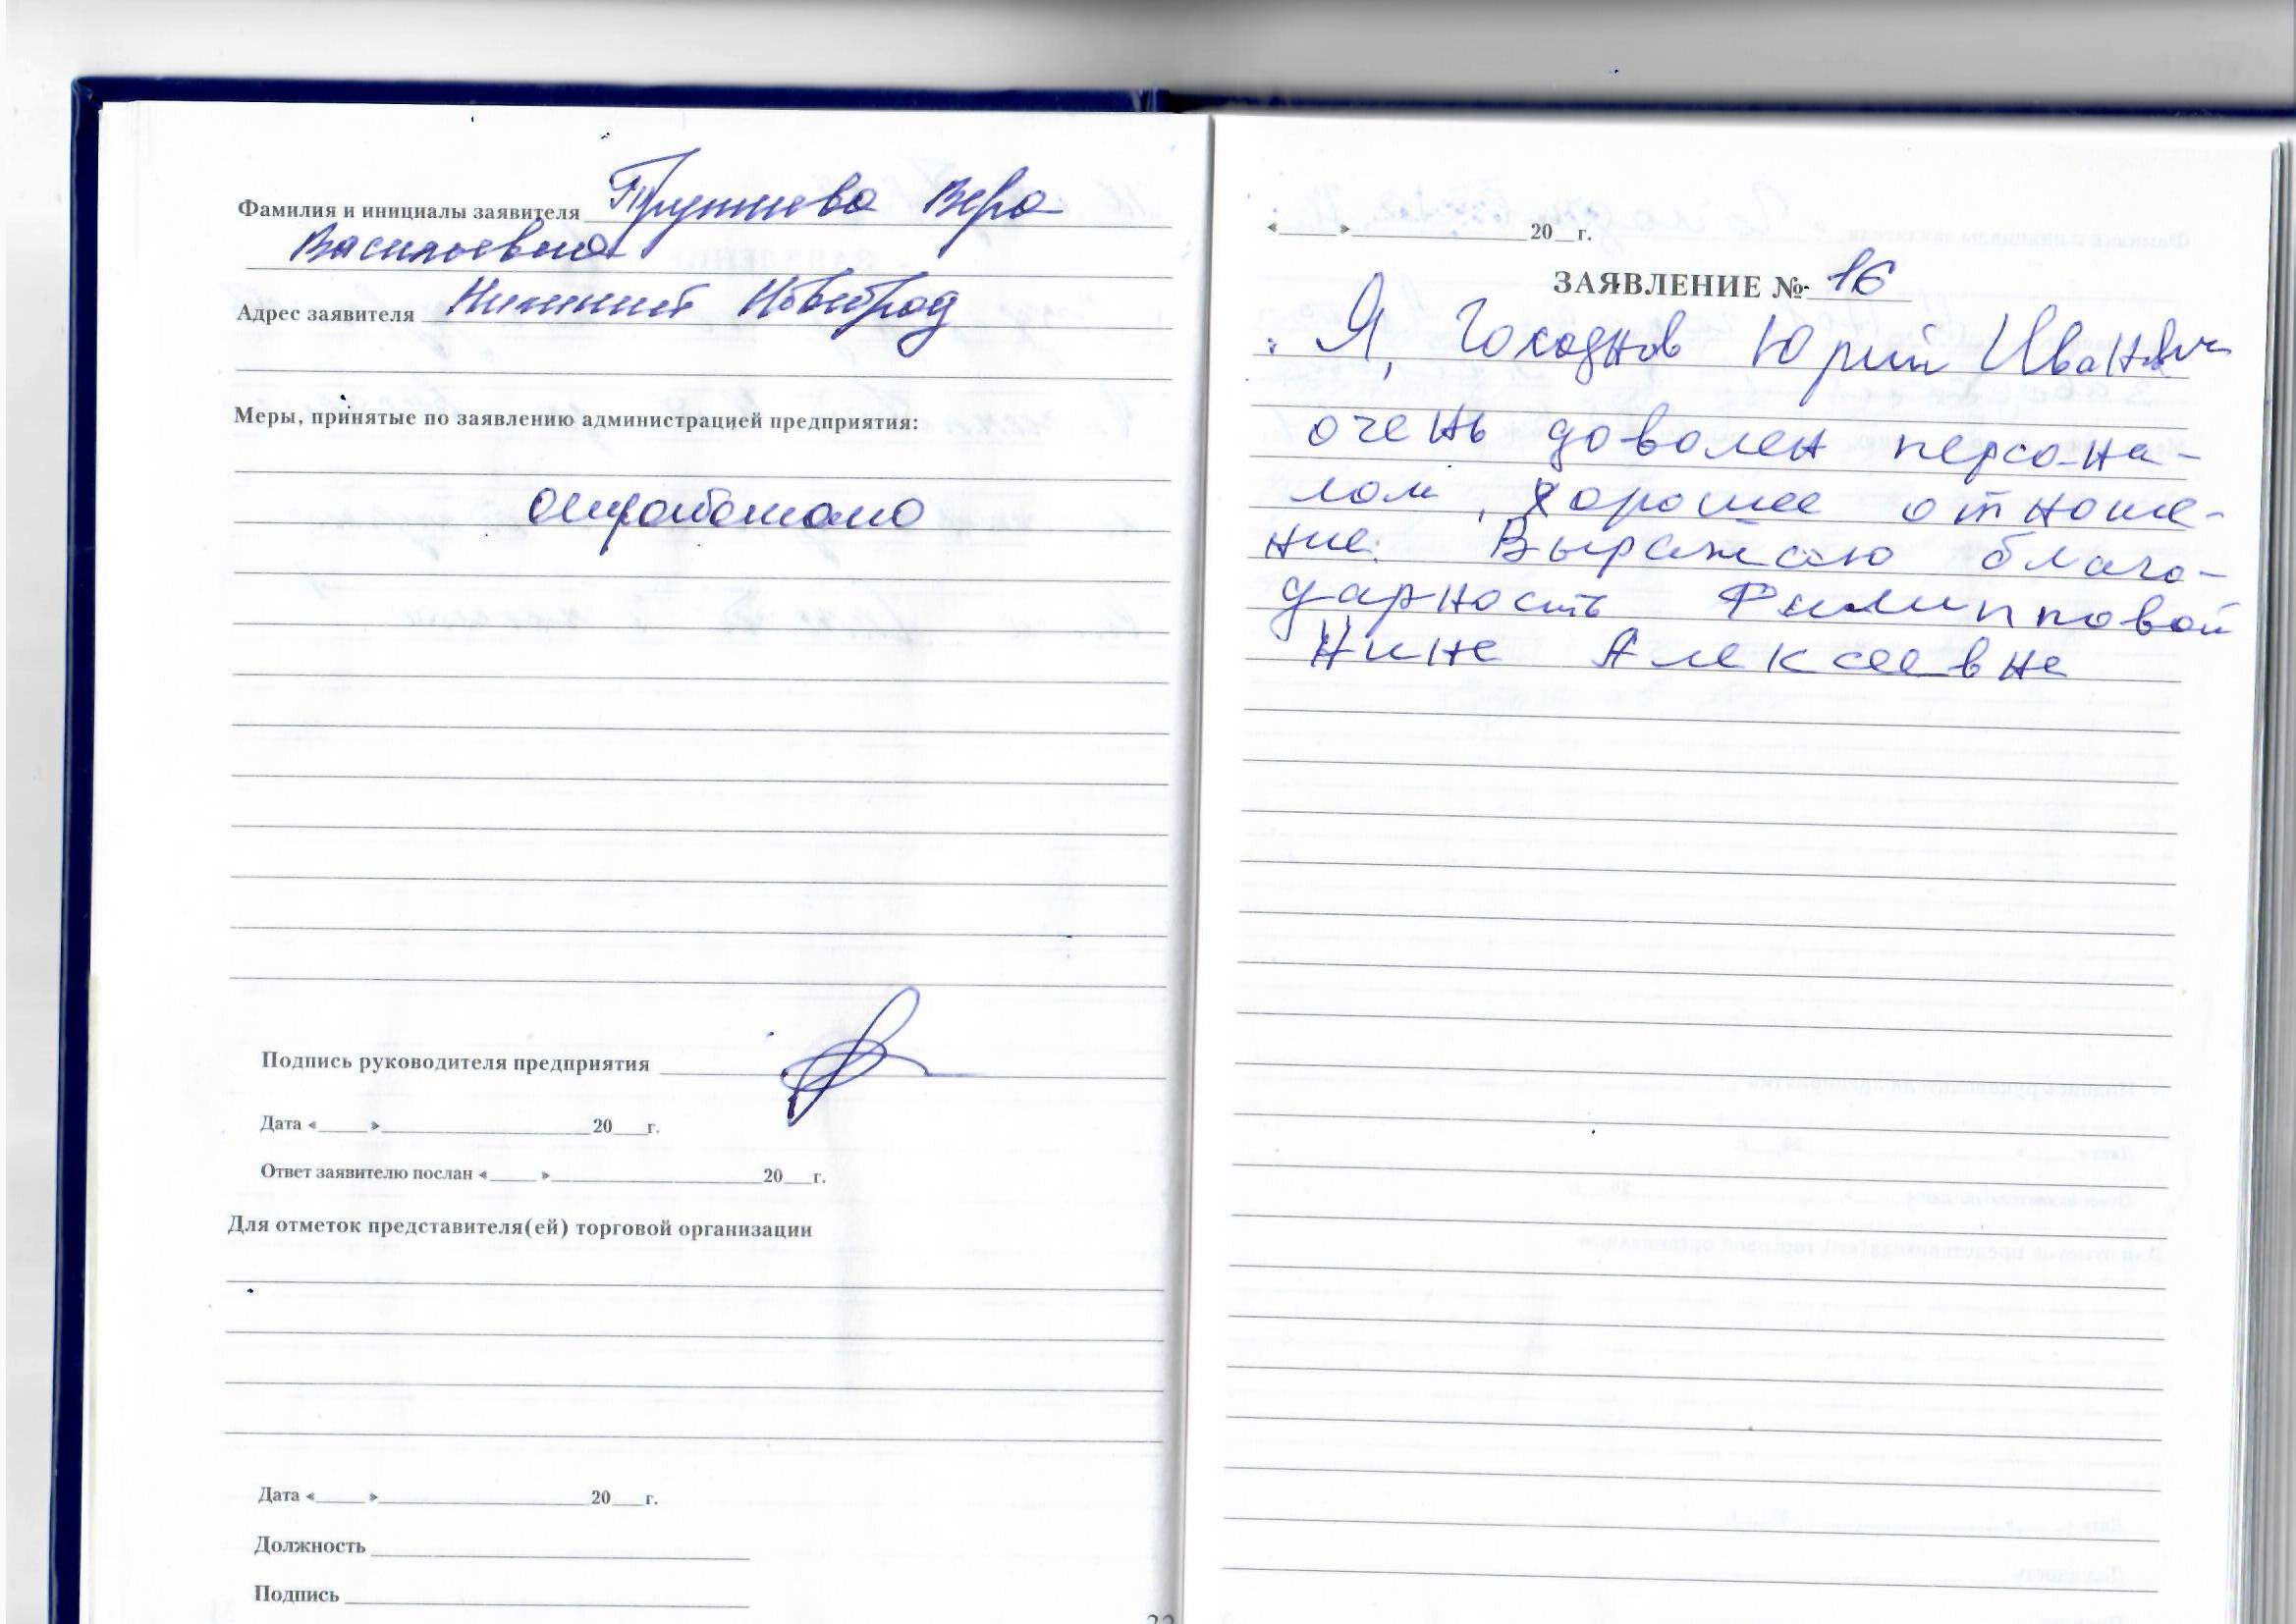 Фамилия и инициалы заявителя Вера
Васильевна
Адрес заявителя Нижний Новгород
Меры, принятые по заявлению администрацией предприятия:
отработано
Подпись руководителя предприятия
Дата «____»____________20___г.
Ответ заявителю послан «____»____________20___г.
Для отметок представителя(ей) торговой организации
Дата «____»____________20___г.
Должность
Подпись
«____»____________20__г.
ЗАЯВЛЕНИЕ № 16
Я, Юрий Иванович
очень доволен персона-
лом, хорошее отноше-
ние. Выражаю благо-
дарность Филипповой
Нине Алексеевне